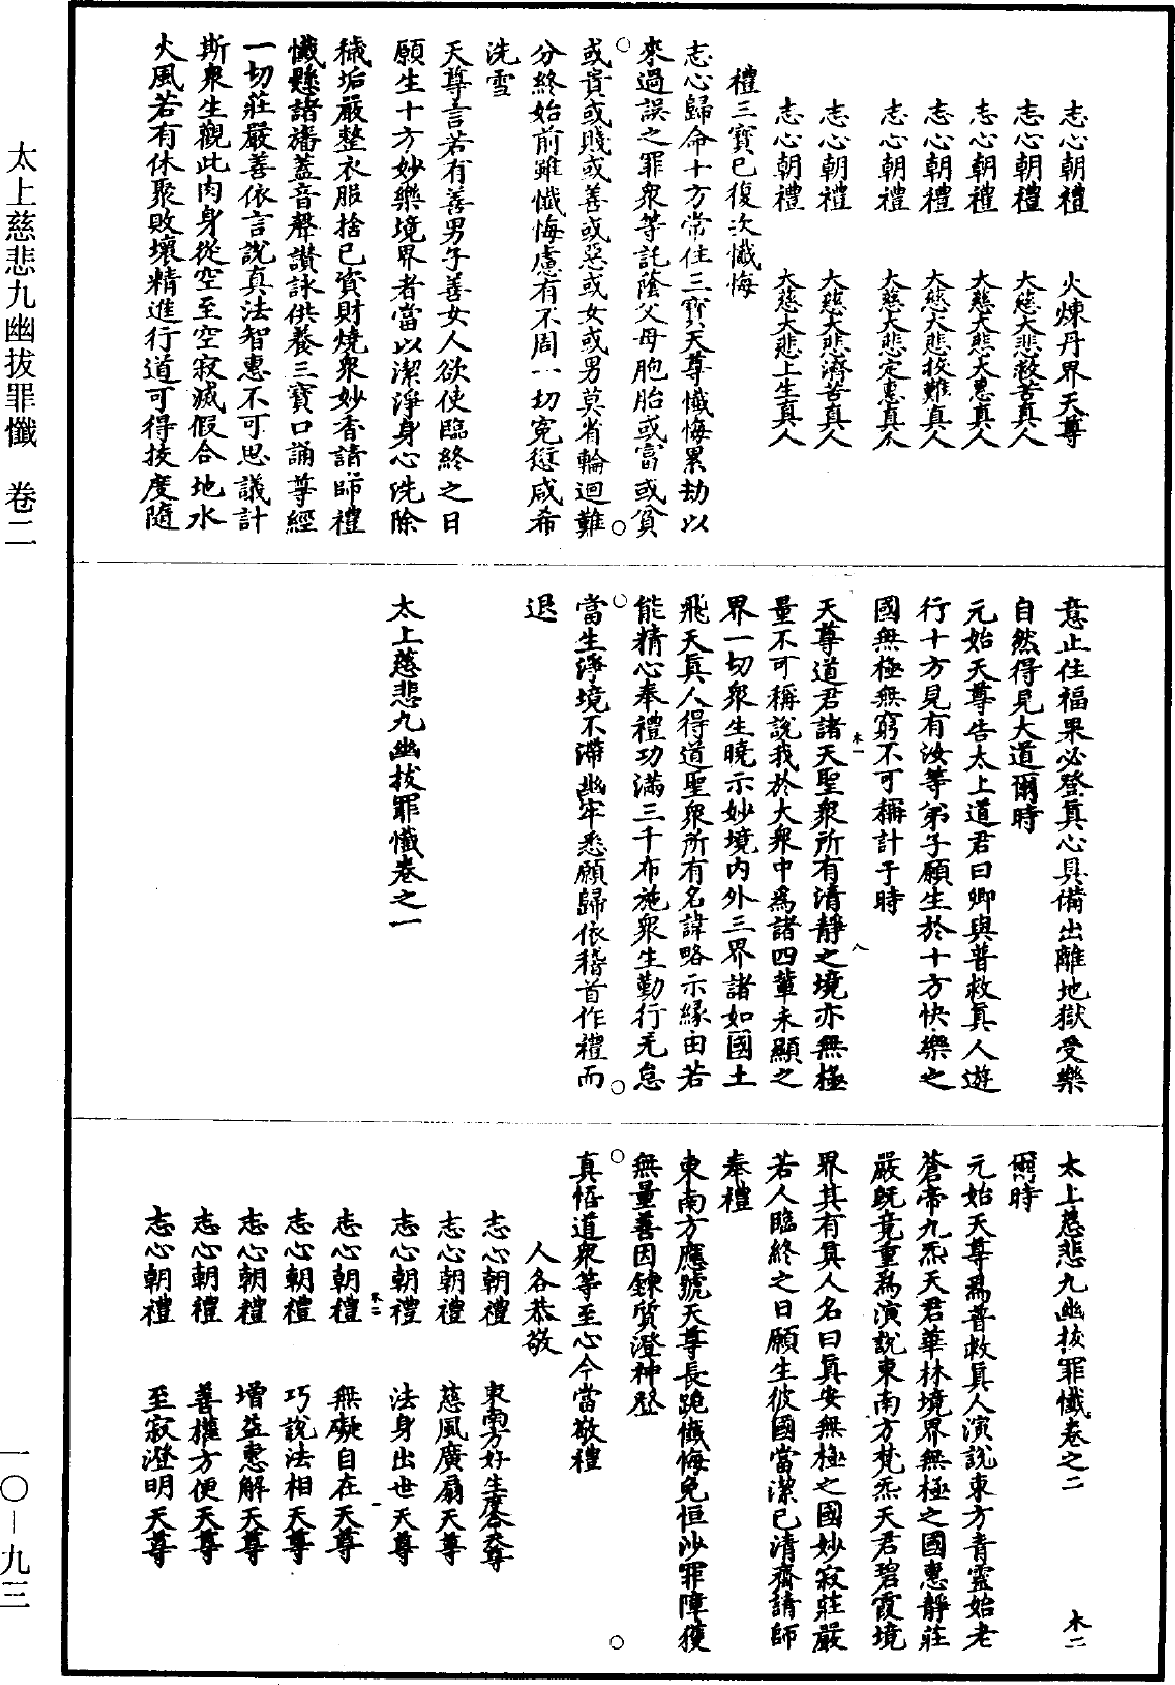 志心朝禮　火煉丹界天尊
志心朝禮　大慈大悲救苦真人
志心朝禮　大慈大悲大惠真人
志心朝禮　大慈大悲救難真人
志心朝禮　大慈大悲定惠真人
志心朝禮　大慈大悲濟苦真人
志心朝禮　大慈大悲上生真人
禮三寶已復次懺悔
志心歸命十方常住三寶天尊懺悔累劫以
來過誤之罪衆等託蔭父母胞胎或富或貧
或貴或賤或善或惡或女或男莫省輪迴難
分終始前雖懺悔慮有不周一切冤愆咸希
洗雪
天尊言若有善男子善女人欲使臨終之日
願生十方妙樂境界者當以潔淨身心洗除
穢垢嚴整衣服捨已資財燒衆妙香請師禮
懺懸諸旛蓋音聲讚詠供養三寶口誦尊經
一切莊嚴善依言說真法智惠不可思議計
斯衆生觀此肉身從空至空寂滅假合地水
火風若有休聚敗壞精進行道可得拔度隨
意止住福果必登真心具備出離地獄受樂
自然得見大道爾時
元始天尊告太上道君曰卿與普救真人遊
行十方見有汝等弟子願生於十方快樂之
國無極無窮不可稱計于時
天尊道君諸天聖衆所有清靜之境亦無極
木一　八
量不可稱說我於大衆中爲諸四輩未顯之
界一切衆生曉示妙境内外三界諸如國土
飛天真人得道聖衆所有名諱略示緣由若
能精心奉禮功滿三千布施衆生勤行无怠
當生淨境不滯幽牢悉願歸依稽首作禮而
退
太上慈悲九幽拔罪懺卷之一
太上慈悲九幽拔罪懺卷之二　木二
爾時
元始天尊爲普救真人演說東方青靈始老
蒼帝九炁天君華林境界無極之國惠靜莊
嚴旣竟重爲演說東南方梵炁天君碧霞境
界其有真人名曰真安無極之國妙寂莊嚴
若人臨終之日願生彼國當潔已清齋請師
奉禮
東南方應號天尊長跪懺悔免恒沙罪障獲
無量善因鍊質澄神登
真悟道衆等至心今當敬禮
人各恭敬
志心朝禮　東南方好生度命天尊
志心朝禮　慈風廣扇天尊
志心朝禮　法身出世天尊
木二　一
志心朝禮　無礙自在天尊
志心朝禮　巧說法相天尊
志心朝禮　增益惠解天尊
志心朝禮　善權方便天尊
志心朝禮　至寂澄明天尊
太上慈悲九幽拔罪懺　卷二
一〇－九三